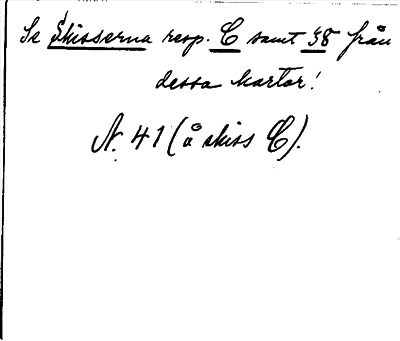 Se Skisserna resp. C samt 58 från
dessa kartor!
N. 41 (å skiss C).